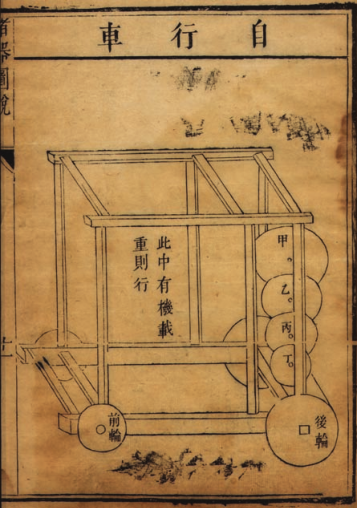 自行車
諸器圖說
此中有機載
重則行
甲
乙
丙
丁
前輪
後輪